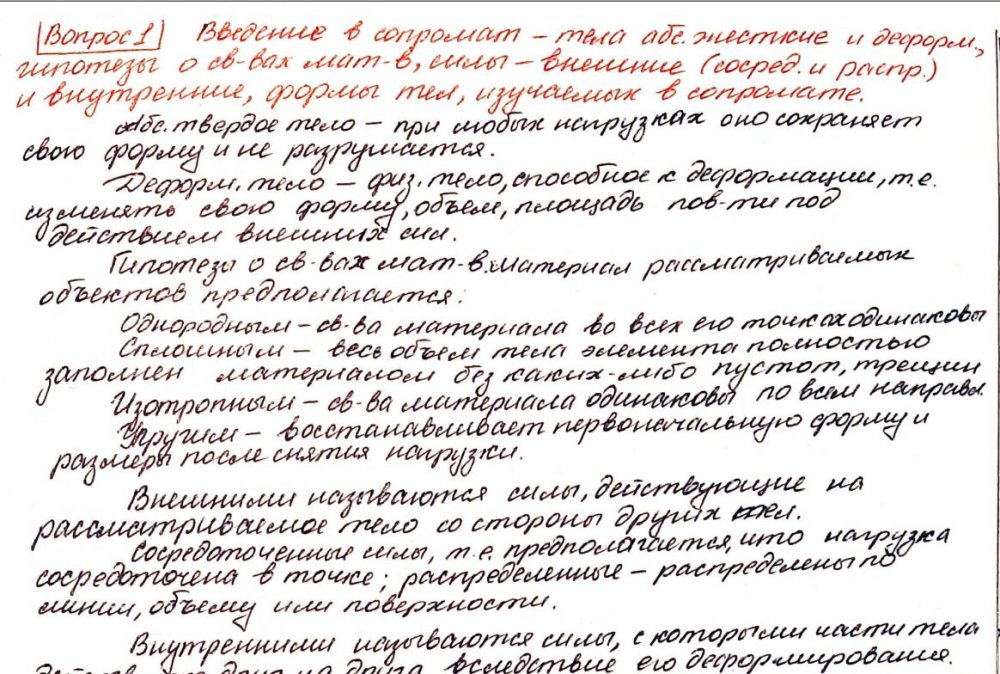 Вопрос 1 Введение в сопромат – тела абс. жесткие и деформ.,
гипотезы о св-вах мат-в, силы – внешние (сосред. и распр.)
и внутренние, формы тел, изучаемых в сопромате.
Абс. твердое тело – при любых нагрузках оно сохраняет
свою форму и не разрушается.
Деформ. тело – физ. тело, способное к деформации, т.е.
изменять свою форму, объем, площадь пов-ти под
действием внешних сил.
Гипотезы о св-вах мат-в. Материал рассматриваемых
объектов предполагается:
Однородным – св-ва материала во всех его точках одинаковы
Сплошным – весь объем тела элемента полностью
заполнен материалом без каких-либо пустот, трещин
Изотропным – св-ва материала одинаковы по всем направл.
Упругим – восстанавливает первоначальную форму и
размеры после снятия нагрузки.
Внешними называются силы, действующие на
рассматриваемое тело со стороны других тел.
Сосредоточенные силы, т.е. предполагается, что нагрузка
сосредоточена в точке; распределенные – распределены по
линии, объему или поверхности.
Внутренними называются силы, с которыми части тела
друг на друга вследствие его деформирования.